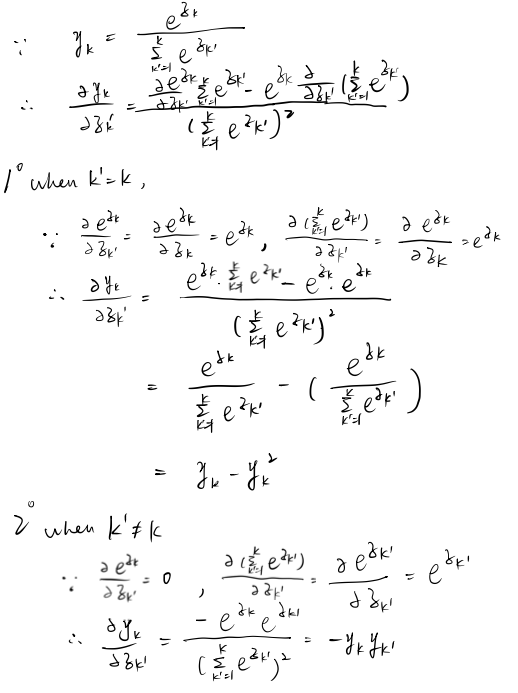 ∵ y_k = e^{z_k} / Σ_{k'=1}^{K} e^{z_{k'}}
∴ ∂y_k/∂z_{k'} = (∂e^{z_k}/∂z_{k'} Σ_{k'=1}^{K} e^{z_{k'}} - e^{z_k} ∂/∂z_{k'} (Σ_{k'=1}^{K} e^{z_{k'}})) / (Σ_{k'=1}^{K} e^{z_{k'}})^2
1° when k'=k,
∵ ∂e^{z_k}/∂z_{k'} = ∂e^{z_k}/∂z_k = e^{z_k}, ∂(Σ_{k'=1}^{K} e^{z_{k'}})/∂z_{k'} = ∂e^{z_k}/∂z_k = e^{z_k}
∴ ∂y_k/∂z_{k'} = (e^{z_k} · Σ_{k'=1}^{K} e^{z_{k'}} - e^{z_k} · e^{z_k}) / (Σ_{k'=1}^{K} e^{z_{k'}})^2
= e^{z_k} / Σ_{k'=1}^{K} e^{z_{k'}} - (e^{z_k} / Σ_{k'=1}^{K} e^{z_{k'}})
= y_k - y_k^2
2° when k' ≠ k
∵ ∂e^{z_k}/∂z_{k'} = 0, ∂(Σ_{k'=1}^{K} e^{z_{k'}})/∂z_{k'} = ∂e^{z_{k'}}/∂z_{k'} = e^{z_{k'}}
∴ ∂y_k/∂z_{k'} = -e^{z_k} e^{z_{k'}} / (Σ_{k'=1}^{K} e^{z_{k'}})^2 = -y_k y_{k'}